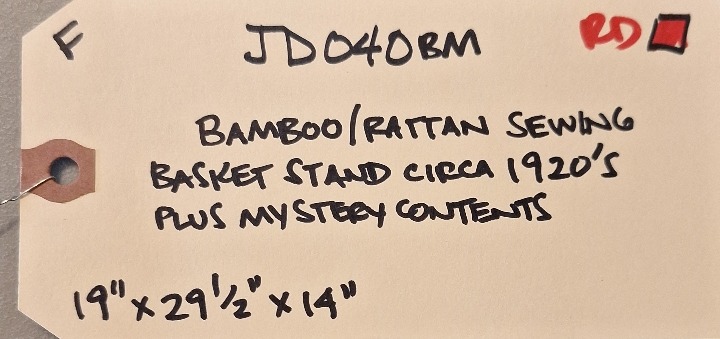 F
JD040BM
RD
BAMBOO/RATTAN SEWING
BASKET STAND CIRCA 1920'S
PLUS MYSTERY CONTENTS
19" x 29 1/2" x 14"